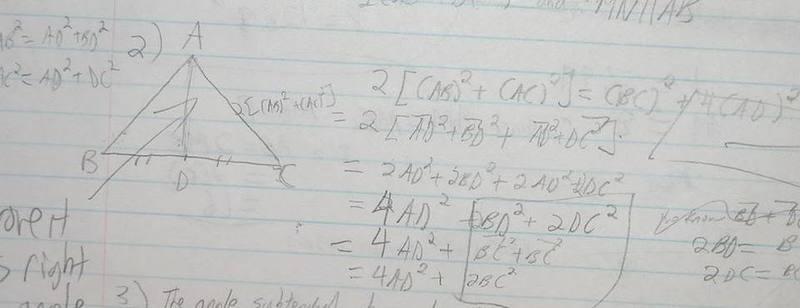 and MN||AB
AB² = AD² + BD²
AC² = AD² + DC²
2)
A
B
D
C
2[(AB)² + (AC)²]
2[(AB)² + (AC)²] = (BC)² + 4(AD)²
= 2[AD² + BD² + AD² + DC²]
= 2AD² + 2BD² + 2AD² + 2DC²
= 4AD² + 2BD² + 2DC²
= 4AD² + BC² + BC²
= 4AD² + 2BC²
2BD =
2DC =
right
3) The angle subtended